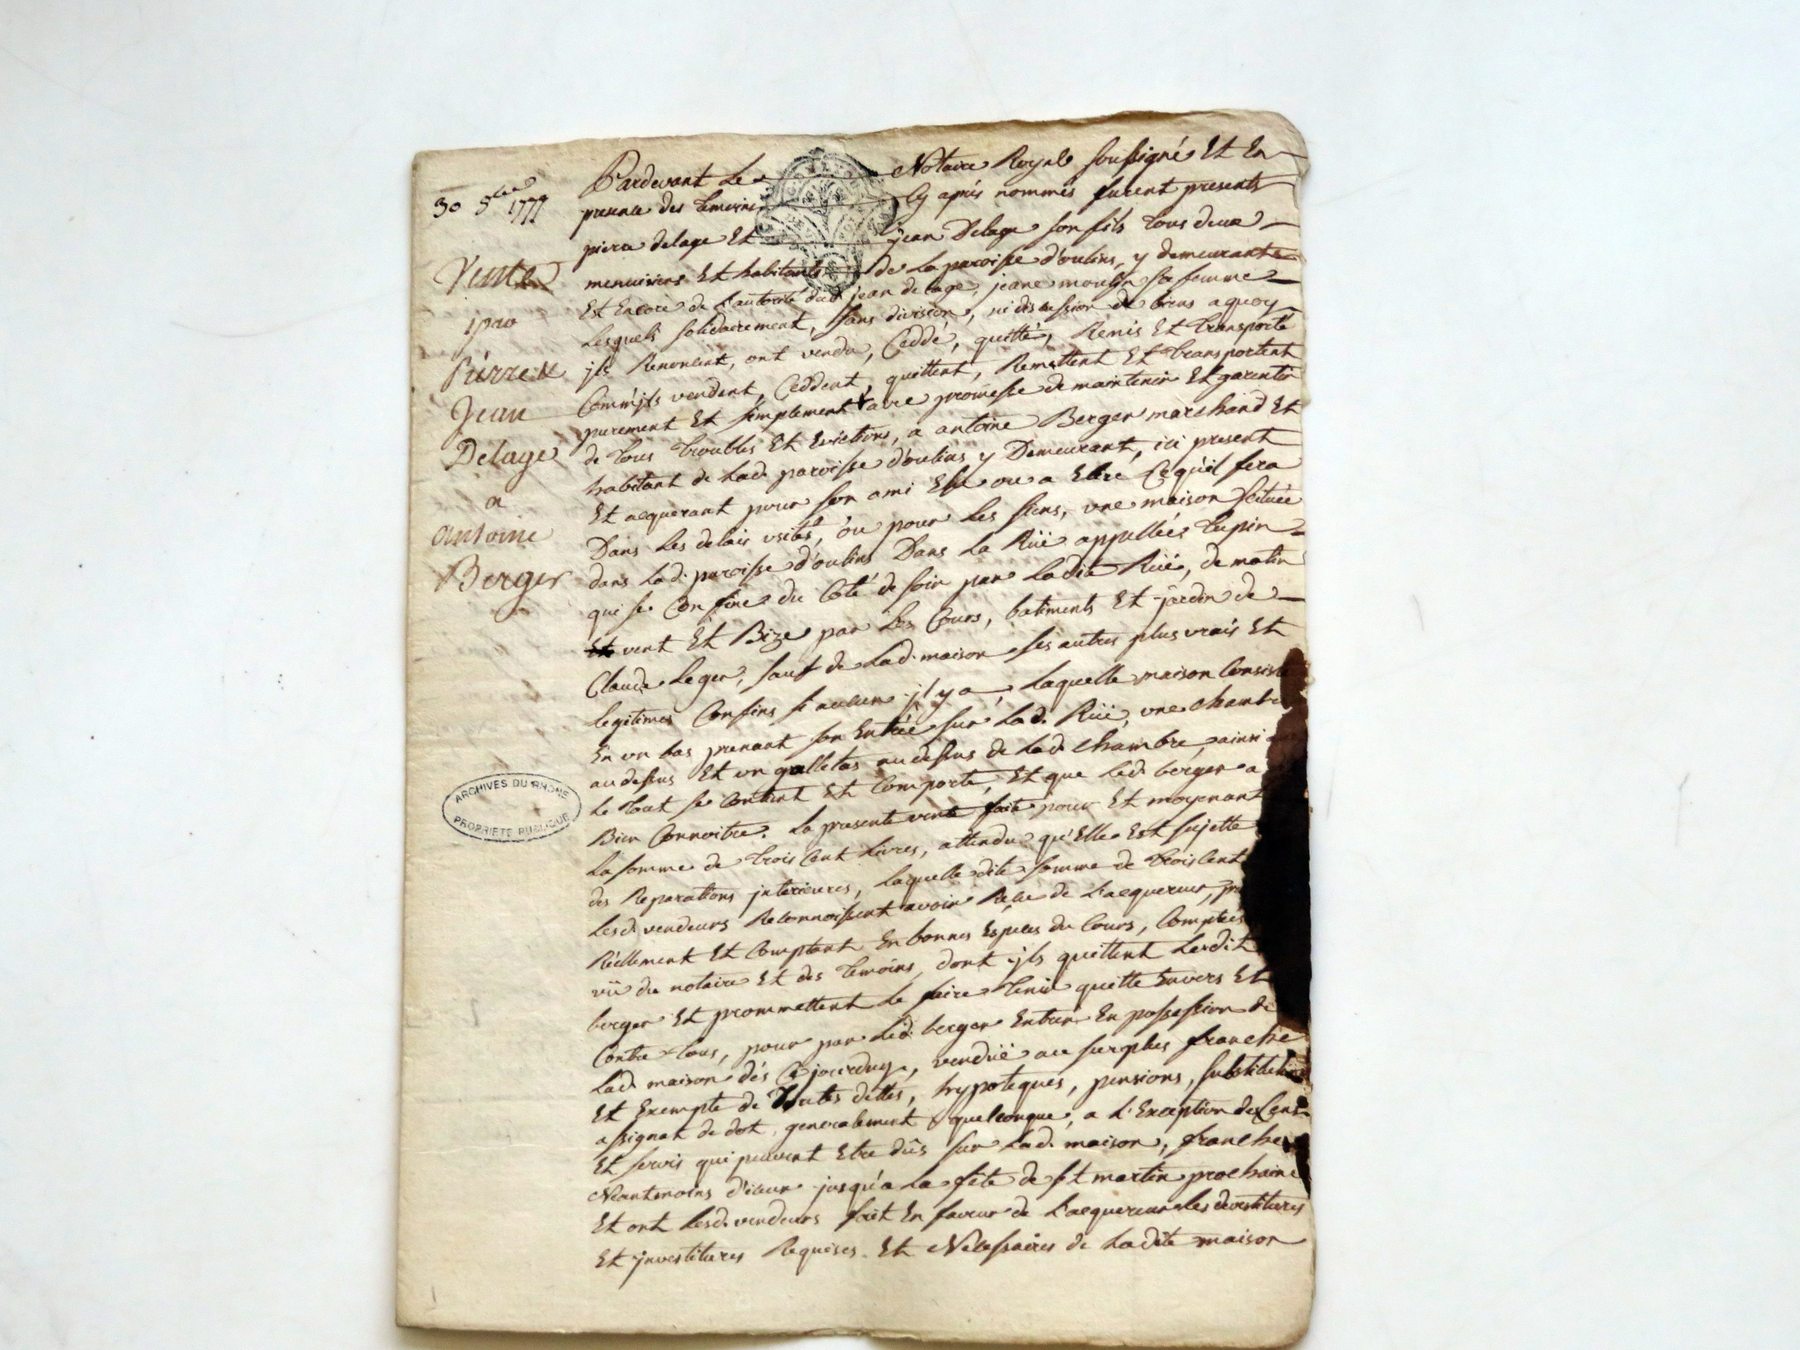 30 9bre 1777
Vente
par
Pierre et
Jean
Delage
a
antoine
Berger
Pardevant Le Notaire Royal soussigné Et En
presence des temoins Cy après nommés furent presents
pierre delage Et jean Delage son fils tous deux
menuisiers Et habitants de La paroisse d'oulins, y demeurants
Et Encore de L'autorité dud. jean delage, jeane moulin sa femme
Lesquels solidairement, sans division, ni discussion de biens aquoy
jls Renoncent, ont vendu, Ceddé, quitté, Remis Et transporté
Comm'jls vendent, Ceddent, quittent, Remettent Et transportent
purement Et simplement avec promesse de maintenir Et garentir
de tous troubles Et Evictions, a antoine Berger marchand Et
habitant de Lad. paroisse d'oulins y Demeurant, ici present
Et acquerant pour son ami Elu ou a Elire Ce qu'il fera
Dans Les delais usités, ou pour Les siens, une maison scituée
dans Lad. paroisse d'oulins Dans La Rüe appellée tupin
qui se Confine du Coté de soir par Ladite Rüe, de matin
vent Et Bize par Les Cours, batiments Et jardin de
Claude Leger, sauf de Lad. maison ses autres plus vrais Et
legitimes Confins si aucun jl y a, Laquelle maison Consiste
En un bas prenant son Entrée sur Lad. Rüe, une chambre
au dessus Et un galletas au dessus de Lad. chambre, ainsi que
Le tout se Contient Et Comporte, Et que Led. berger a
Bien Connoitre. La presente vente faite pour Et moyenant
La somme de trois Cent Livres, attendu qu'Elle Est sujette
des Reparations jnterieures, Laquelle dite somme de trois Cent
Lesd. vendeurs Reconnoissent avoir Reçue de L'acquereur,
Réellement Et Comptant En bonnes Espèces du Cours, Comptées
vü du notaire Et des temoins, dont jls quittent Ledit
berger Et promettent Le faire tenir quitte Envers Et
Contre tous, pour par Led. berger Entrer En possession de
Lad. maison dés Ce jourduy, vendüe au surplus franche
Et Exempte de toutes dettes, hypoteques, pensions, substitutions
assignat de dot, generalement quelconque, a L'Exception des Cens
Et servis qui peuvent Etre dûs sur Lad. maison, franche
Neantmoins d'iceux jusqu'a La fête de st martin prochaine
Et ont Lesd. vendeurs fait En faveur de L'acquereur Les devestitures
Et jnvestitures Requises Et Necessaires de Ladite maison
ARCHIVES DU RHÔNE
PROPRIETE PUBLIQUE